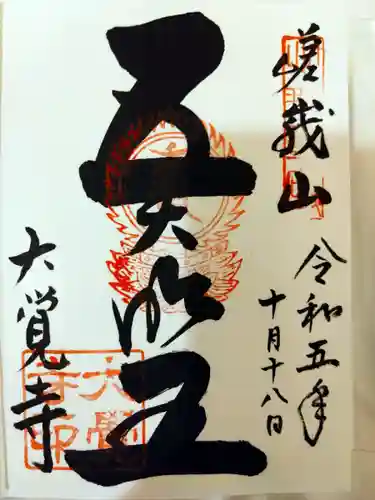 嵯峨山
令和五年
十月十八日
五大明王
大覺寺